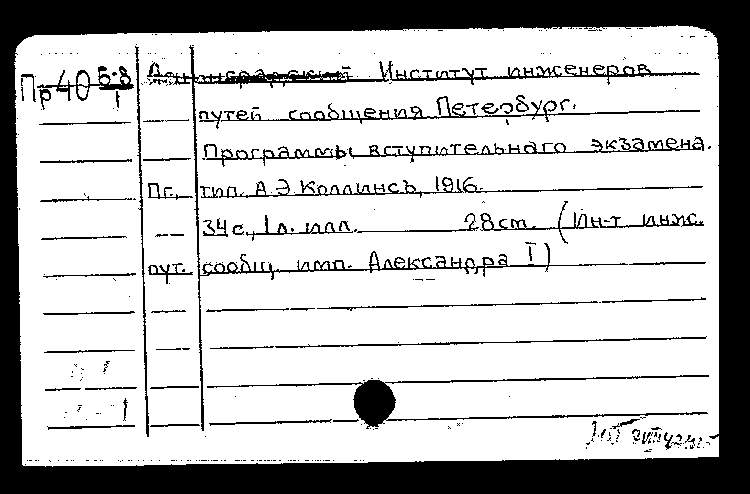 Пр 40 б-8/1 Ленинградский Институт инженеров
путей сообщения Петербург.
Программы вступительного экзамена.
Пг., тип. А.Э.Коллинсъ, 1916.
34с., 1л. илл. 28cm. (Ин-т инж.
пут. сообщ. имп. Александра I)